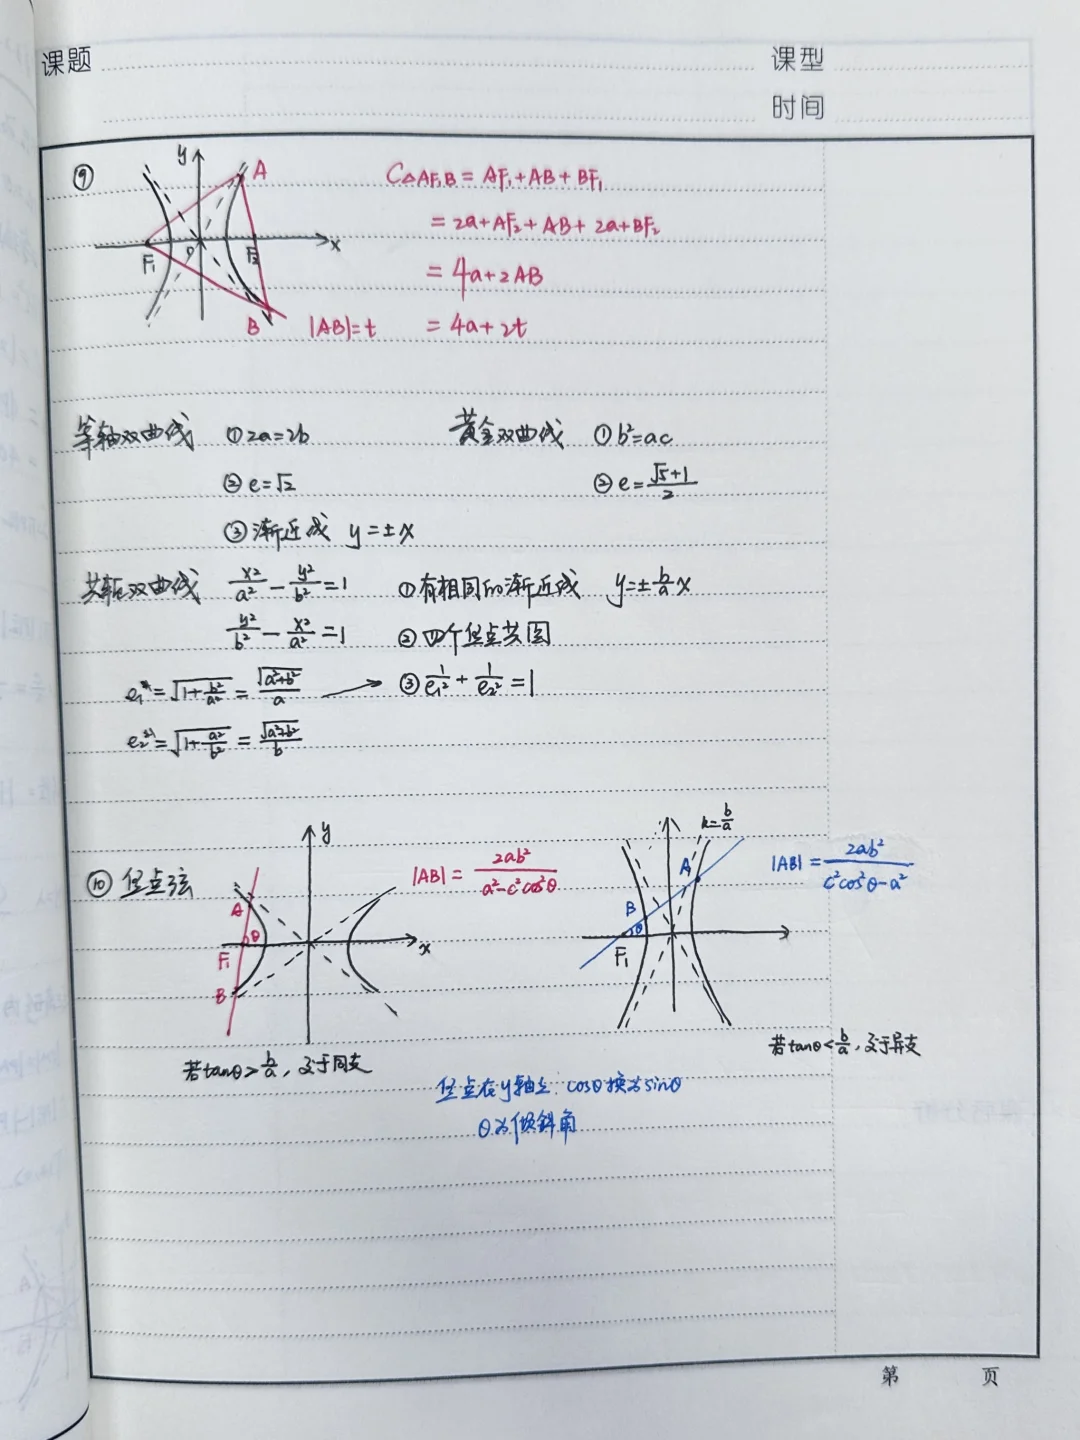 课题
课型
时间
⑨
y
A
x
F₁
O
F₂
B
|AB|=t
C△AF₁B = AF₁+AB+BF₁
= 2a+AF₂+AB+2a+BF₂
= 4a+2AB
= 4a+2t
等轴双曲线 ①2a=2b
②e=√2
③渐近线 y=±x
黄金双曲线 ①b²=ac
②e=(√5+1)/2
共轭双曲线 x²/a² - y²/b² =1 ①有相同的渐近线 y=±b/a x
y²/b² - x²/a² =1 ②四个焦点共圆
e₁=√(1+b²/a²) = √(a²+b²)/a → ③1/e₁² + 1/e₂² =1
e₂=√(1+a²/b²) = √(a²+b²)/b
⑩ 焦点弦
y
A
θ
F₁
B
x
|AB| = 2ab²/(a²-c²cos²θ)
若tanθ>b/a，交于同支
k=b/a
A
B
θ
F₁
|AB| = 2ab²/(c²cos²θ-a²)
若tanθ<b/a，交于异支
焦点在y轴上：cosθ换为sinθ
θ为倾斜角
第 页